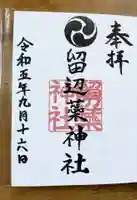 奉拝
留辺蘂神社
令和五年九月十六日